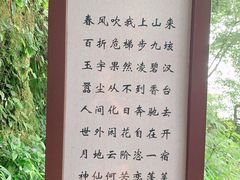 春风吹我上山来
百折危梯步九垓
玉宇果然凌碧汉
嚣尘从不到香台
人间化日奔驰去
世外闲花自在开
月地云阶恣一宿
神仙何苦恋蓬莱